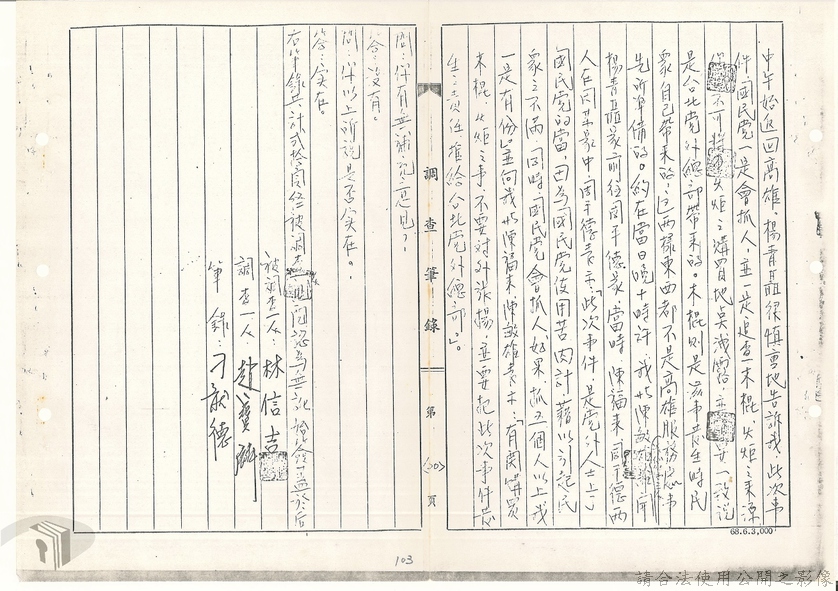 中午始返回高雄，楊青矗很慎重地告訴我，此次事
件國民黨一定會抓人，並一定是追查木棍、火炬之來源
不可將 火炬之購買地點洩露，並 一致說
是台北黨外總部帶來的。木棍則是 事 發生時民
眾自己帶來的，這兩樣東西都不是高雄服務處事
先所準備的。約在當日晚十時許，我與陳敏雄
楊青矗等前往周平德家，當時陳福來、周平德兩
人在周某家中，周平德表示：「此次事件，是黨外人士上了
國民黨的當，因為國民黨使用苦肉計藉以引起民
眾之不滿，同時，國民黨會抓人，如果抓五個人以上，我
一定有份」並向我與陳福來、陳敏雄表示：「有關購買
木棍、火炬之事，不要對外張揚，並要把此次事件發
生之責任推給台北黨外總部」。
問：你有無補充意見？
答：沒有。
問：你以上所說是否實在。
答：實在。
右筆錄共計貳拾頁經被調查人 閱認為無訛始簽 於后
被調查人：林信吉
調查人：趙
筆錄：刁 德
調查筆錄
第〈20〉頁
68.6.3,000
103
請合法使用公開之影像